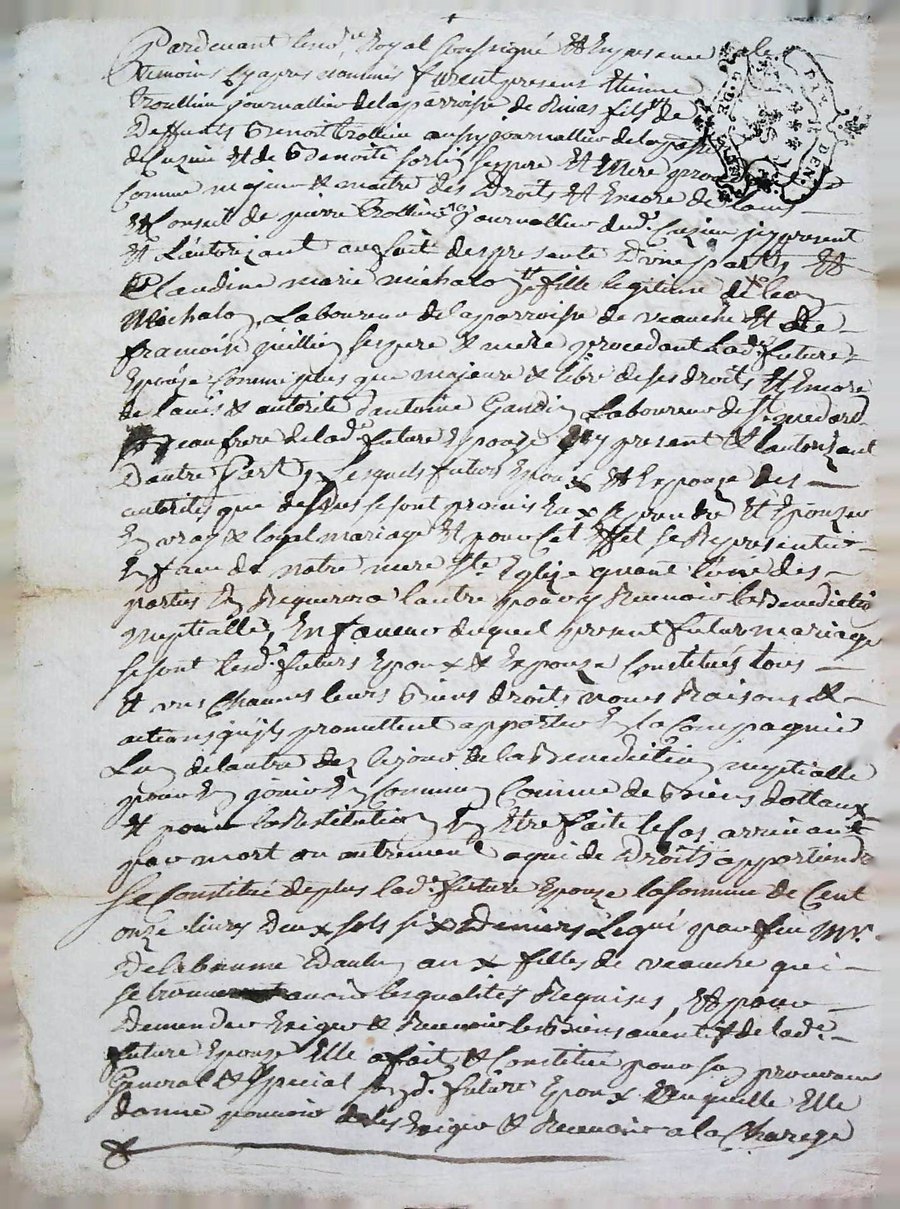 Pardevant le no.re Royal soussigné Et En presence de
temoins cy apres nommés furent presens Etienne
Trollieu journallier de la parroisse de Rivas fils de
Deffunts Benoit Trollieu aussy journallier de la parr
de Cuzieu Et de Benoite sa Et Mere pro
Comme majeur & maitre des Droits Et Encore de l'avis
Et Conseil de pierre Trollieu journallier dud. Cuzieu jcy present
Et L'autorizant au fait des presente D'une part, Et
Claudine marie michalon fille legitime de
Michalon, Laboureur de la parroisse de veauche Et de
francoise ses pere & mere procedant lad.e future
Epouze Comme plus que majeure & libre de ses droits Et Encore
de l'avis & autorité d'antoine Laboureur de St. medard
beaufrere de lad.e future Epouze jcy present & l'autorizant
D'autre Part, Lesquels futurs Epoux Et Epouze des
autorités que dessus se sont promis Eux se prendre Et Epouzer
En vray & loyal mariage Et pour cet Effet se Representer
En face de notre mere Ste. Eglize quant l'une des
parties En Requerera l'autre pour y Recevoir la Benediction
nuptialle, En faveur duquel present futur mariage
se sont lesd. futurs Epoux & Epouze Constitués tous
& uns Chacuns leurs Biens droits noms Raisons &
actions qu'jls promettent apporter En la Compagnie
L'un de l'autre dez le jour de la Benediction nuptialle
pour En jouir En Commun Comme de Biens dottaux
Et pour la Restitution En Etre faite le Cas arrivant
par mort ou autrement a qui de Droits appartiendra
Se Constitue de plus lad.e future Epouze la somme de Cent
onze livres Deux sols six Deniers Légué par feu Mr.
Delabaume aux filles de veauche qui
se trouve avoir les qualités Requises, Et pour
Demender Exiger & Recevoir les Biens avenir de lad.e
future Epouze Elle a fait & Constitué pour son procureur
General & special son d. futur Epoux Auquelle Elle
donne pouvoir de les Exiger & Recevoir a la Charge